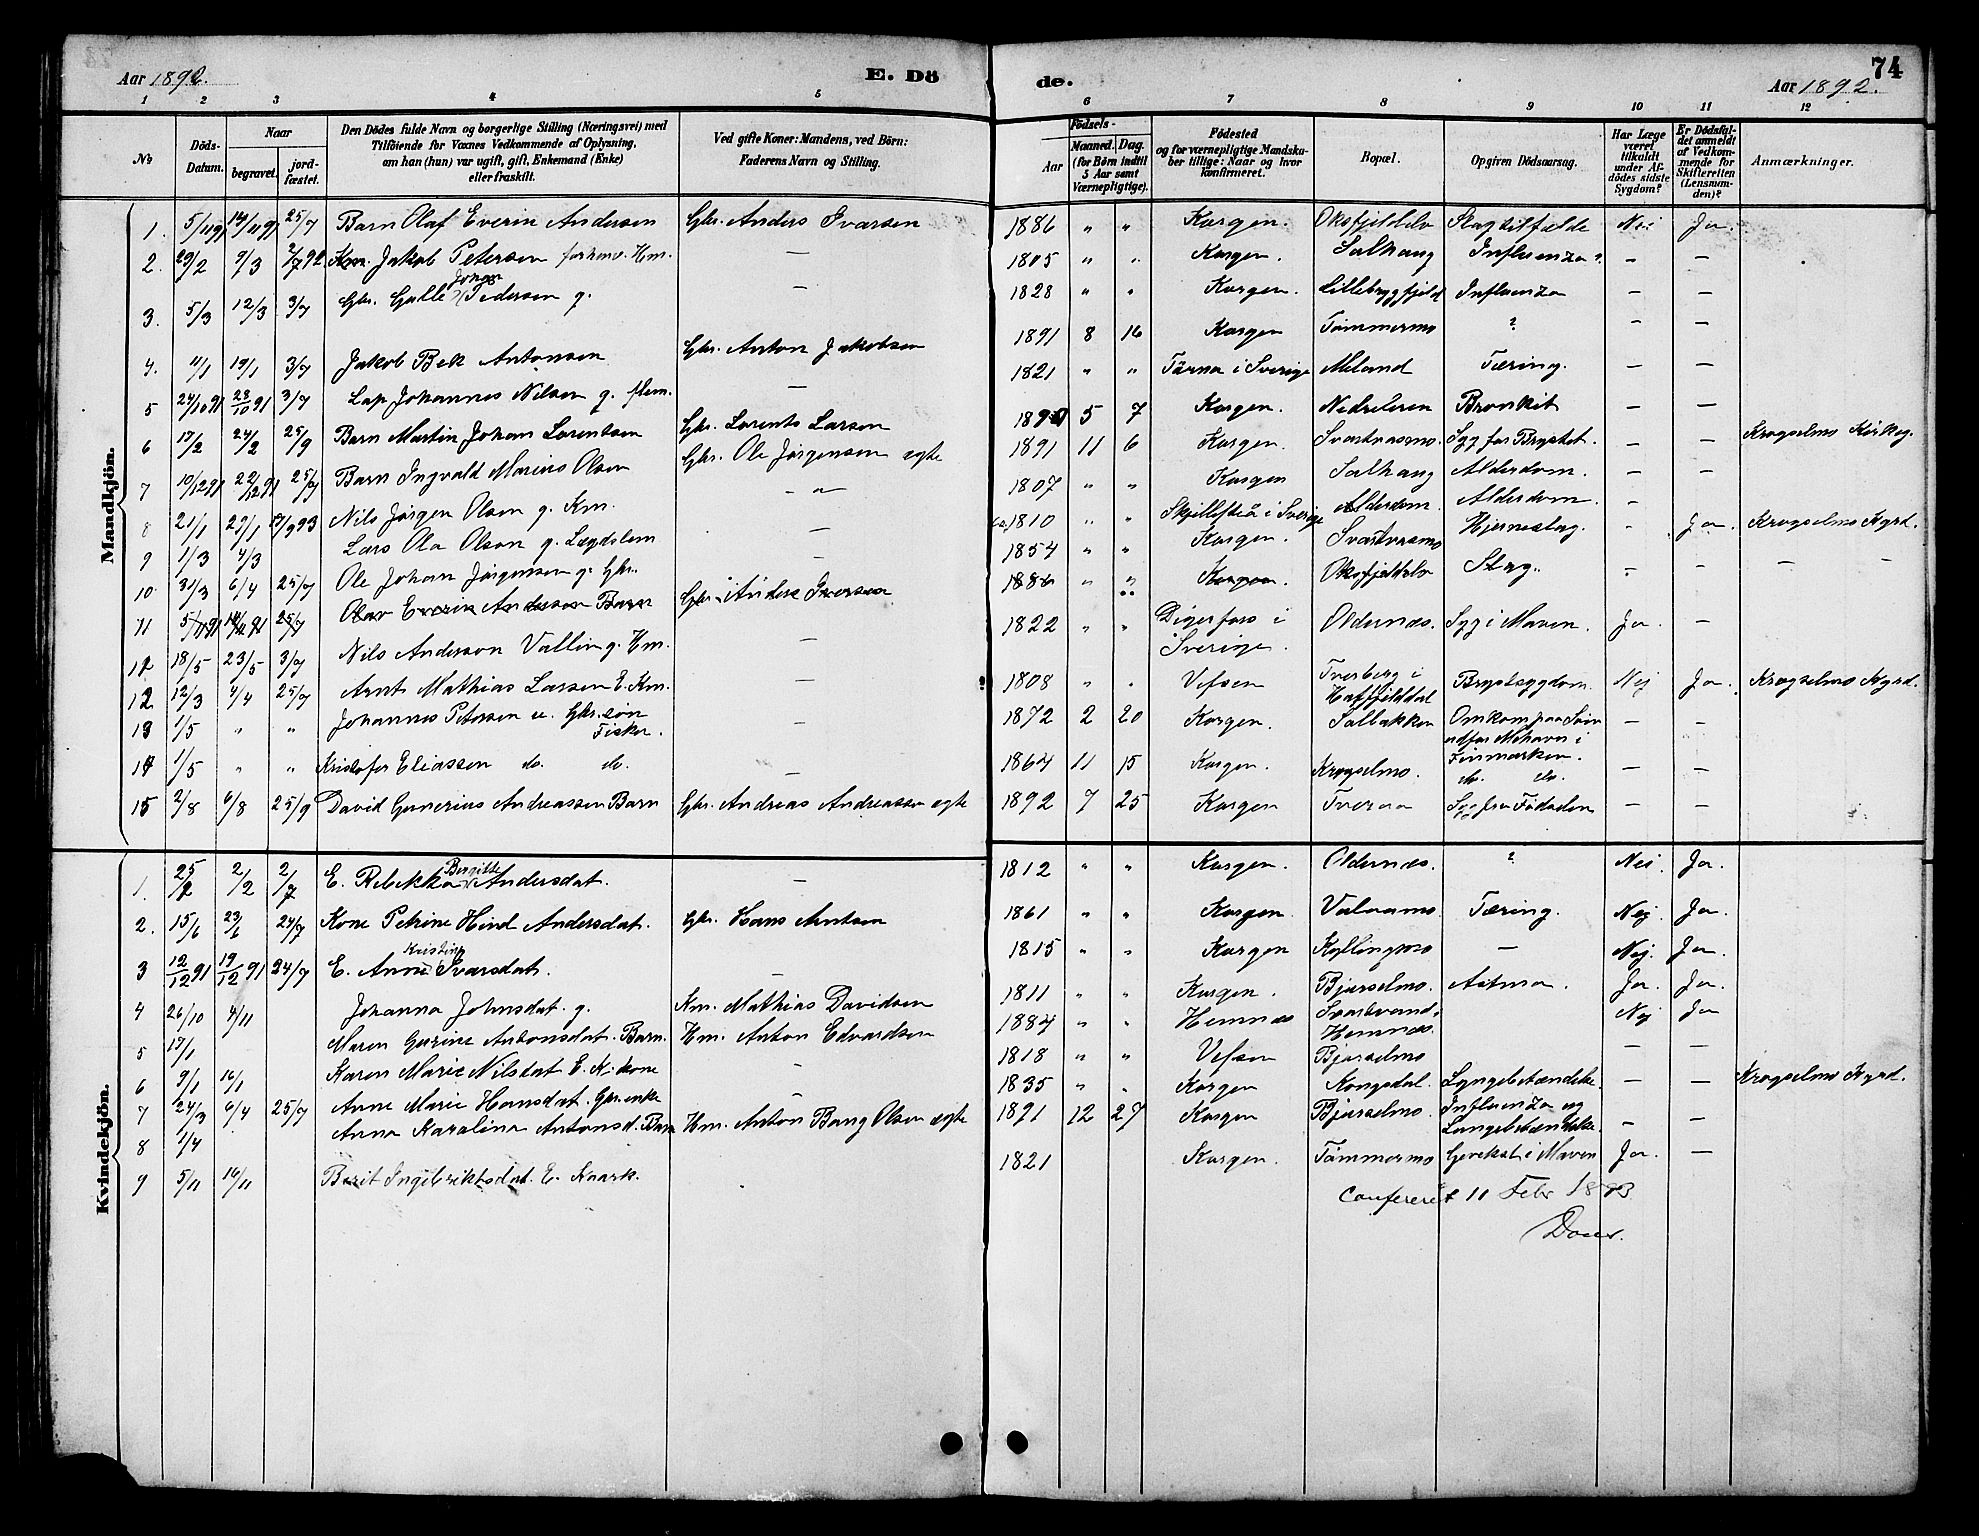 Aar 1892. E. Dö
1 2 3 4 5
No
Döds-Datum.
Naar
begravet.
jordfæstet.
Den Dödes fulde Navn og borgerlige Stilling (Næringsvei) med Tilföiende for Voxnes Vedkommende af Oplysning, om han (hun) var ugift, gift, Enkemand (Enke) eller fraskilt.
Ved gifte Koner: Mandens, ved Börn: Faderens Navn og Stilling.
Mandkjön.
1. 5/11 91 14/11 91 25/7 Barn Olaf Everin Andersen Gbr. Anders Ivarsen
2. 29/2 9/3 2/7 92 Km. Jakob Petersen forhenv. Hm. —
3. 5/3 12/3 3/7 Gbr. Galle Johan Pedersen g. —
4. 4/1 19/1 3/7 Jakob Bek Antonsen Gbr. Anton Jakobsen
5 24/10 91 28/10 91 3/7 Lap Johannes Nilsen g. —
6 17/2 24/2 25/9 Barn Martin Johan Lorentsen Gbr. Lorents Larsen
7 10/12 91 22/12 91 25/7 Barn Ingvald Marius Olsen Gbr. Ole Jørgensen ægte
8 21/1 29/1 17/9 93 Nils Jørgen Olsen g. Km. — " —
9 1/3 4/3 Lars Ola Olson g. Lægdslem —
10. 31/3 6/4 25/7 Ole Johan Jørgensen g. Gbr. —
11 5/11 91 14/11 91 25/7 Olav Everin Andersen Barn Gbr. Anders Iversen
12 18/5 23/5 3/7 Nils Anderson Vallin g. Hm. —
12 12/3 4/4 25/7 Arnt Mathias Larsen E. Km. —
13 1/5 " " Johannes Petersen u. Gbr. søn Fisker. —
14 1/5 " " Kristofer Eliassen do. do. —
15 2/8 6/8 25/9 David Gunerius Andreassen Barn Gbr. Andreas Andreassen ægte
Kvindekjön.
1. 25/2 2/2 2/7 E. Rebekka Bergitte Andersdat. —
2. 15/6 23/6 24/7 Kone Petrine Hind Andersdat. Gbr. Hans Arntsen
3 12/12 91 19/12 91 24/7 E. Anne Kristine Ivarsdat. —
4 26/10 4/11 Johanna Johnsdat. g. Km. Mathias Davidsen
5 17/1 Maren Gurine Antonsdat. Barn. Hm. Anton Edvardsen
6 9/1 16/1 Karen Marie Nilsdat E. K. kone —
7 24/3 6/4 25/7 Anne Marie Hansdat. Gbr. enke —
8 1/4 Anna Karalina Antonsd. Barn Hm. Anton Bang Olsen ægte
9 5/11 16/11 Berit Ingebriktsdat. E. Kaark.
de. Aar 1892. 74
6 7 8 9 10 11 12
Födsels-
Aar
Maaned. Dag.
(for Börn indtil 5 Aar samt Værnepligtige).
Födested og for værnepligtige Mandskaber tillige: Naar og hvor konfirmeret.
Bopæl.
Opgiven Dödsaarsag.
Har Læge været tilkaldt under Afdödes sidste Sygdom?
Er Dödsfaldet anmeldt af Vedkommende for Skifteretten (Lensmanden)?
Anmærkninger.
1886 " " Korgen. Oksfjeldelv Slagtilfælde Nei Ja.
1805 " " Korgen. Salhaug Influenza? — —
1828 " " Korgen. Lillebryggfjeld Influenza — —
1891 8 16 Korgen Tömmermo ? — —
1821 " " Tärna i Sverige Meland Tæring. — —
5 7 Korgen. Nedreleren Bronkit — —
1891 11 6 Korgen. Svartvasmo. Syg for Brystet. — — Krogselmo Kirkeg.
1807 " " Korgen Salhaug Alderdom. — —
ca. 1810 " " Skjellefteå i Sverige Alderdom. —
1854 " " Korgen. Svartvasmo Hjerneslag. - Ja. Krogselmo Kgrd.
1886 " " Korgen. Oksfjeldelv Slag. - — — —
1822 " " Digerfors i Sverige. Oldernæs. Syg i Maven. Ja. —
1808 " " Vefsen Tverberg i Hatfjelddal Brystsygdom Nej Ja. Krogselmo Kgrd.
1872 2 20 Korgen. Salbakken Omkom paa Søen udfor Mehavn i Finmarken. — —
1864 11 15 Korgen. Krogselmo. do. do. — —
1892 7 25 Korgen Tveraa Syg fra Fødselen — —
1812 " " Korgen. Oldernæs. ? Nei. Ja.
1861 " " Korgen. Valaamo. Tæring. Nej. Ja.
1815 " " Korgen Kyllingmo — Nej. Ja.
1811 " " Korgen. Bjurselmo. Astma. Ja. Ja.
1884 " " Hemnæs Svartvand, Hemnæs. Nej Ja
1818 " " Vefsen Bjurselmo — —
1835 " " Korgen Kongsdal. Lungebetændelse. — — Krogselmo Kgrd.
1891 12 27 Korgen Bjurselmo. Influenza og Lungebetændelse. — —
1821 Korgen. Tömmermo Gevekst i Maven Ja. —
Confereret 11 Febr 1893